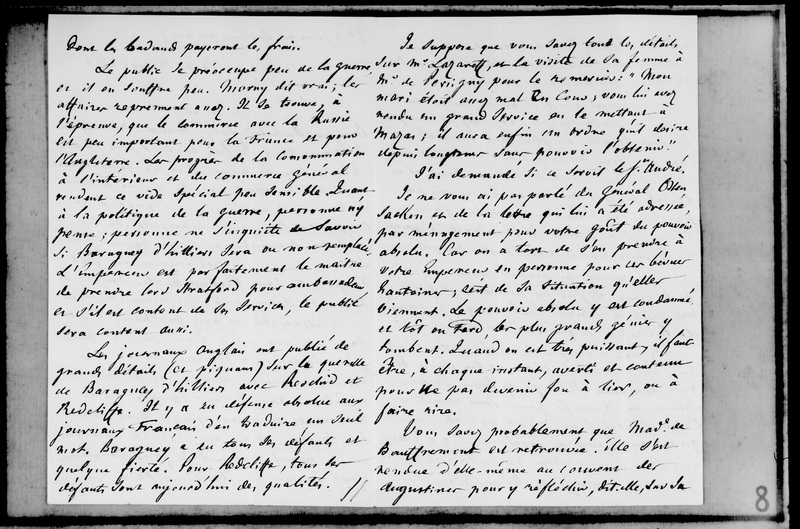 Dont les badauds payeront les frais.
Le public se préoccupe peu de la guerre,
et il en souffre peu. Morny dit vrai; les
affaires reprennent assez. Il se trouve, à
l'épreuve, que le commerce avec la Russie
est peu important pour la France et pour
l'Angleterre. Les progrès de la consommation
à l'intérieur et du commerce général
rendent ce vide spécial peu sensible. Quant
à la politique de la guerre, personne n'y
pense; personne ne s'inquiète de savoir
si Baraguey d'hilliers sera ou non remplacé.
L'empereur est parfaitement le maître
de prendre lord Stratford pour ambassadeur
et s'il est content de ses services, le public
sera content aussi.
Les journaux anglais ont publié de
grands détails (et piquans) sur la querelle
de Baraguey d'hilliers avec Reschid et
Redcliffe. Il y a eu défense absolue aux
journaux Français d'en traduire un seul
mot. Baraguey a eu tous ses défauts et
quelque fierté. Pour Redcliffe, tous ses
défauts sont aujourd'hui des qualités.
Je suppose que vous savez tous les détails
sur Mr Lazareff, et la visite de sa femme à
Mr de Persigny pour le remercier: "Mon
mari étoit assez mal en Cour; vous lui avez
rendu un grand service en le mettant à
Mazas; il aura enfin un ordre qu'il désire
depuis longtemps sans pouvoir l'obtenir."
J'ai demandé si ce seroit le St André.
Je ne vous ai pas parlé du général Osten
Sacken et de la lettre qui lui a été adressée,
par ménagement pour votre goût du pouvoir
absolu. Car on a tort de s'en prendre à
votre empereur en personne pour ces bévues
hautaines; c'est de sa situation qu'elles
viennent. Le pouvoir absolu y est condamné,
et tôt ou tard, les plus grands génies y
tombent. Quand on est très puissant, il faut
être, à chaque instant, averti et contenu
pour ne pas devenir fou à lier, ou à
faire rire.
Vous savez probablement que Made de
Bauffremont est retrouvée. Elle s'est
rendue d'elle-même au couvent des
Augustines pour y réfléchir, dit-elle, sur sa
8